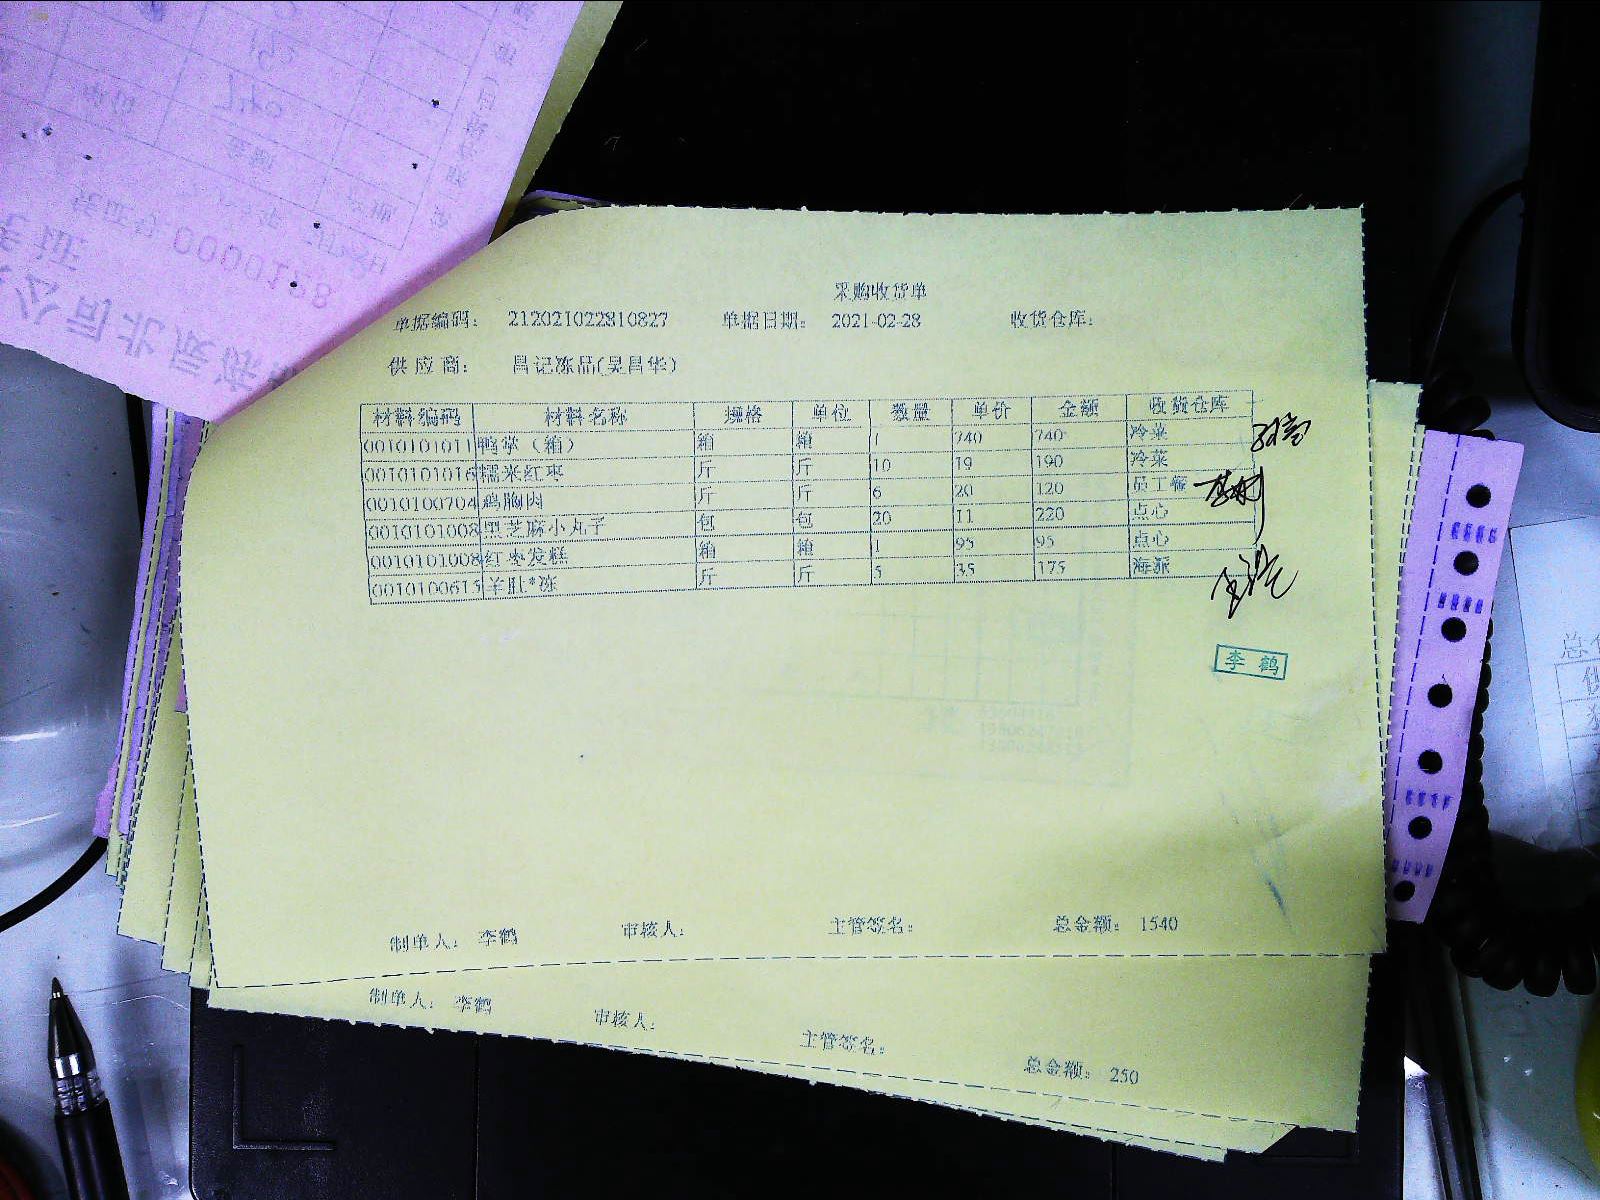 采购收货单
单据编码： 212021022810827 单据日期： 2021-02-28 收货仓库：
供应商： 昌记冻品(吴昌华)
材料编码 材料名称 规格 单位 数量 单价 金额 收货仓库
0010101011 鸭掌（箱） 箱 箱 1 740 740 冷菜
0010101016 糯米红枣 斤 斤 10 19 190 冷菜
0010100704 鸡胸肉 斤 斤 6 20 120 员工餐
0010101008 黑芝麻小丸子 包 包 20 11 220 点心
0010101008 红枣发糕 箱 箱 1 95 95 点心
0010100615 羊肚*冻 斤 斤 5 35 175 海派
李鹤
制单人： 李鹤 审核人： 主管签名： 总金额： 1540
制单人： 李鹤 审核人： 主管签名： 总金额： 250